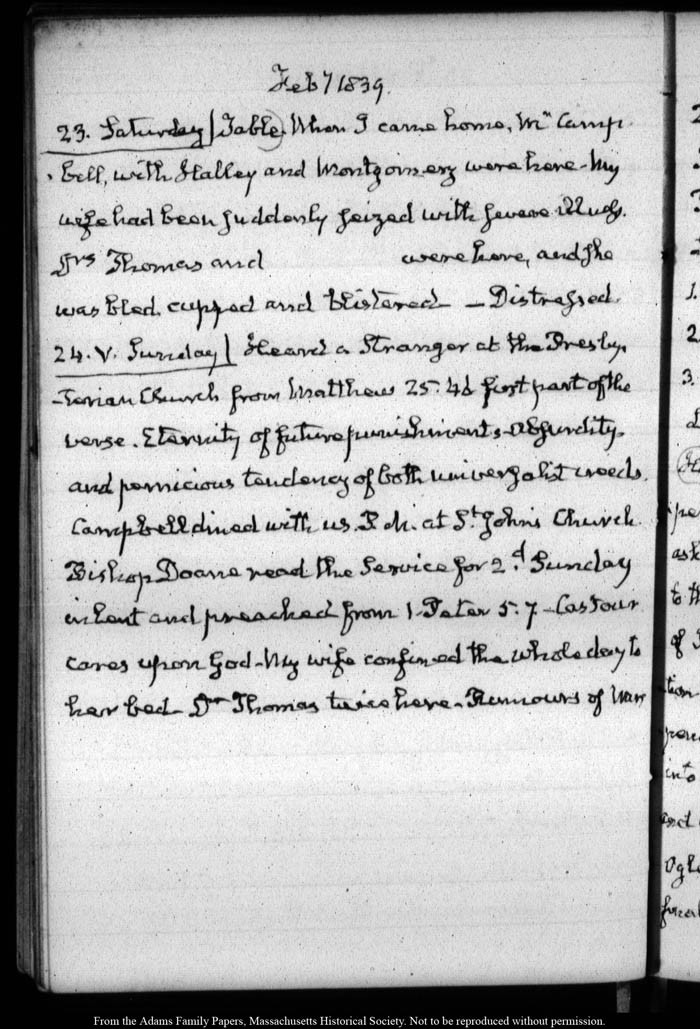 Feby 1839.
23. Saturday | Table. When I came home, Mrs Camp-
bell, with Halley and Montgomery were here. My
wife had been suddenly seized with severe illness.
Drs Thomas and were here, and she
was bled, cupped and blistered — Distressed.
24. V. Sunday | Heard a Stranger at the Presby-
terian Church from Matthew 25. 46 first part of the
verse. Eternity of future punishments. absurdity
and pernicious tendency of both universalist creeds.
Campbell dined with us. P.M. at St. John's Church.
Bishop Doane read the Service for 2d. Sunday
in Lent and preached from 1. Peter 5. 7 - Cast our
cares upon God - My wife confined the whole day to
her bed - Dr Thomas twice here - Rumours of War
From the Adams Family Papers, Massachusetts Historical Society. Not to be reproduced without permission.